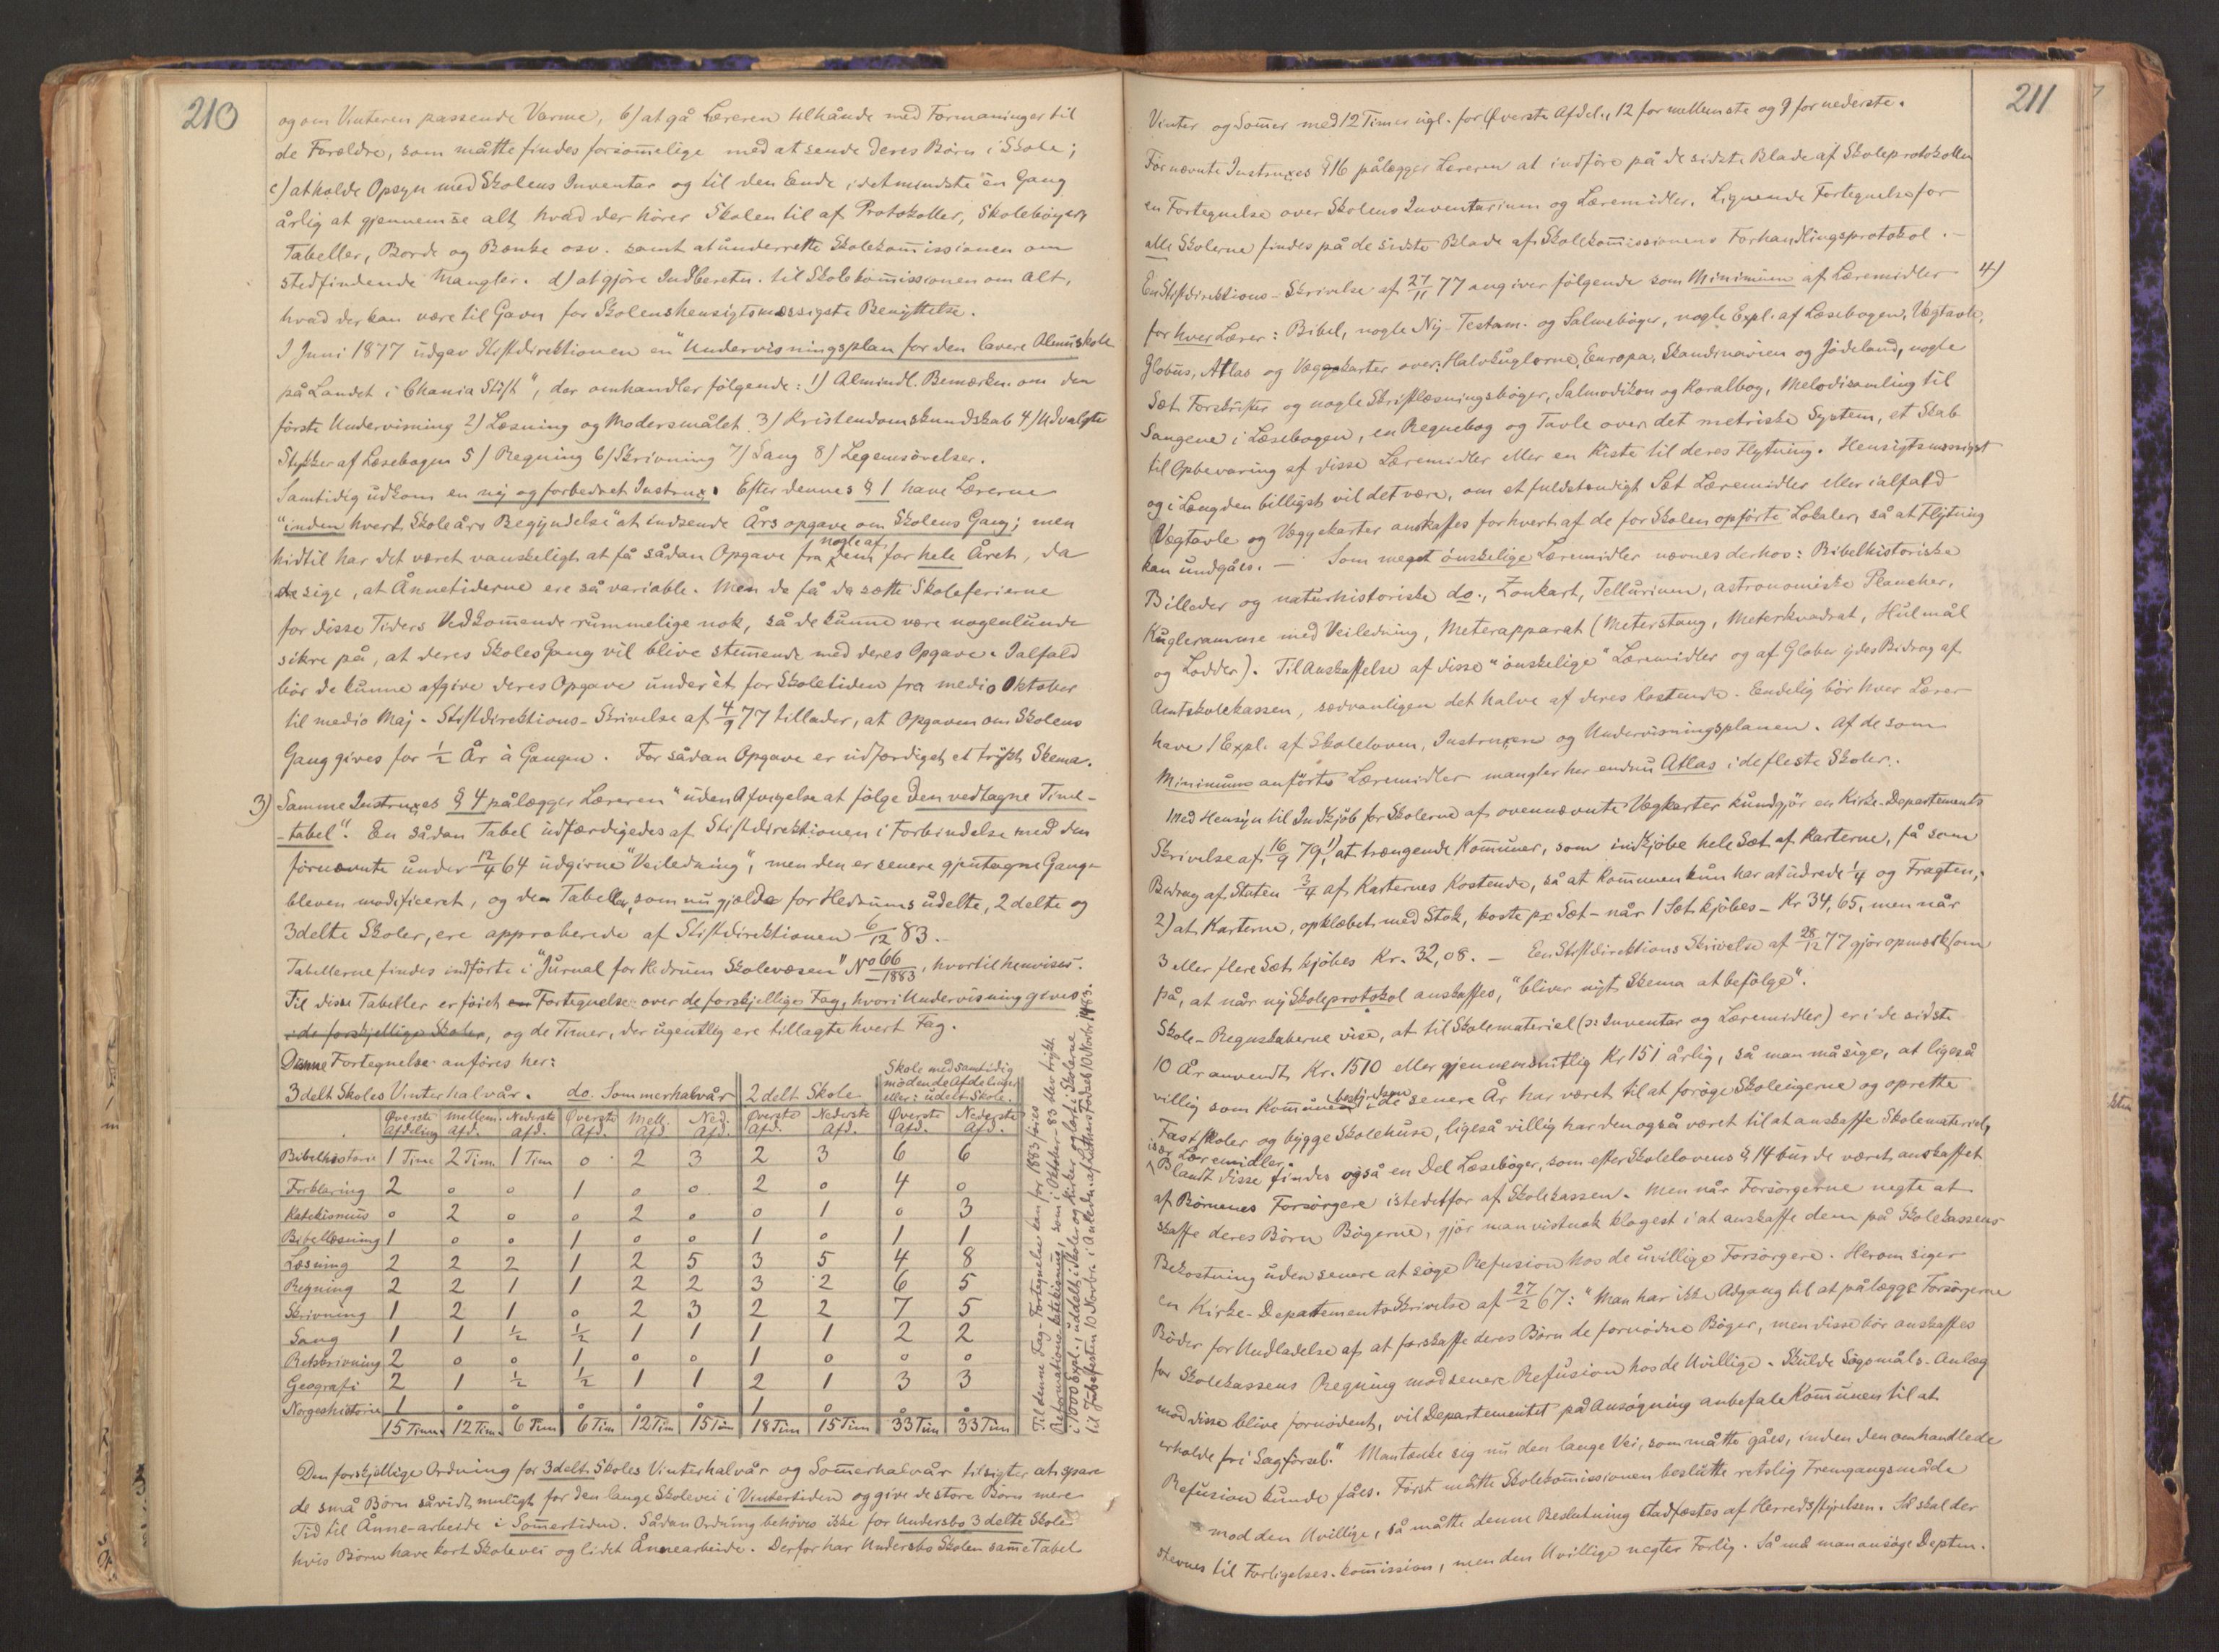 210
og om Vinteren passende Varme, b) at gå Læreren tilhånde med Formaninger til
de Forældre, som måtte findes forsom̅elige med at sende deres Børn i Skole;
c) at holde Opsyn med Skolens Inventar og til den Ende idetmindste én Gang
årlig at gjennemse alt hvad der hører Skolen til af Protokoller, Skolebøger,
Tabeller, Borde og Bænke osv. samt at underrette Skolekom̅issionen om
stedfindende Mangler. d) at gjöre Indberetn. til Skolekom̅issionen om Alt,
hvad der kan være til Gavn for Skolens hensigtsmæssigste Benyttelse.
I Juni 1877 udgav Stiftdirektionen en "Undervisningsplan for den lavere Almuskole
på Landet i Chania Stift", der omhandler følgende: 1) Almindl. Bemærkn. om den
förste Undervisning 2) Læsning og Modersmålet 3) Kristendomskundskab 4) Udvalgte
Stykker af Læsebogen 5) Regning 6) Skrivning 7) Sang 8) Legemsövelser.
Samtidig udkom en ny og forbedret Instrux. Efter dennes § 1 have Lærerne
"inden hvert Skoleårs Begyndelse" at indsende Årsopgave om Skolens Gang; men
hidtil har det været vanskeligt at få sådan Opgave fra nogle af dem for hele Året, da
de sige, at Ånnetiderne ere så variable. Men de få da sætte Skoleferierne
for disse Tiders Vedkom̅ende rummelige nok, så de kunne være nogenlunde
sikre på, at deres Skoles Gang vil blive stem̅ende med deres Opgave. Ialfald
bör de kunne afgive deres Opgave under ét for Skoletiden fra medio Oktober
til medio Maj. Stiftdirektions-Skrivelse af 4/9 77 tillader, at Opgaven om Skolens
Gang gives for ½ År à Gangen. For sådan Opgave er udfærdiget et trykt Skema.
3) Samme Instruxes § 4 pålægger Læreren "uden Afvigelse at følge den vedtagne Time-
-tabel". En sådan Tabel udfærdigedes af Stiftdirektionen i Forbindelse med den
førnævnte under 12/4 64 udgivne "Veiledning", men den er senere gjentagne Gange
bleven modificeret, og de Tabeller, som nu gjælde for Hedrums udelte, 2 delte og
3 delte Skoler, ere approberede af Stiftdirektionen 6/12 83.
Tabellerne findes indförte i "Jurnal for Hedrum Skolevæsen" No 66/1883, hvortil henvises.
Til disse Tabeller er föiet en Fortegnelse over de forskjellige Fag, hvori Undervisning gives
i de forskjellige Skoler, og de Timer, der ugentlig ere tillagte hvert Fag.
Denne Fortegnelse anføres her:
3 delt Skoles Vinterhalvår. do. Sommerhalvår 2 delt Skole Skole med samtidig mødende Afdelinger eller: udelt Skole.
Øverste Afdeling Mellem. Afd. Nederste Afd. Øverste Afd. Mell. Afd. Ned. Afd. Øverste Afd. Nederste Afd. Øverste Afd. Nederste Afd.
Bibelhistorie 1 Time 2 Tim. 1 Tim 0 2 3 2 3 6 6
Forklaring 2 0 0 1 0 0 2 0 4 0
Katekismus 0 2 0 0 2 0 0 1 0 3
Bibellæsning 1 0 0 1 0 0 1 0 1 1
Læsning 2 2 2 1 2 5 3 5 4 8
Regning 2 2 1 1 2 2 3 2 6 5
Skrivning 1 2 1 0 2 3 2 2 7 5
Sang 1 1 ½ ½ 1 1 1 1 2 2
Retskrivning 2 0 0 1 0 0 1 0 0 0
Geografi 2 1 ½ ½ 1 1 2 1 3 3
Norgeshistorie 1 0 0 0 0 0 1 0 0 0
15 Timer 12 Tim. 6 Tim 6 Tim 12 Tim 15 Tim 18 Tim 15 Tim 33 Tim 33 Tim
Til denne Fag-Fortegnelse kan for 1883 föies
Reformations-katekismus, som i Oktober-83 blev trykt
i 1000 Expl., uddelt i Skoler og Kirker og lært i Skolerne
til Jubelfesten 10 Novbr. i Anledn. af Luthers Fødsel 10 Novbr 1483.
Den forskjellige Ordning for 3 delt Skoles Vinterhalvår og Som̅erhalvår tilsigter at spare
de små Børn såvidt muligt for den lange Skolevei i Vintertiden og give de store Børn mere
Tid til Ånne-arbeide i Som̅ertiden. Sådan Ordning behöves ikke for Undersbo 3 delte Skole
hvis Börn have kort Skolevei og lidet Ånnearbeide. Derfor har Undersbo Skolen sam̅e Tabel
211
Vinter og Som̅er med 12 Timer ugl. for Øverste Afdel., 12 for mellemste og 9 for nederste.
Førnævnte Instruxes § 16 pålægger Læreren at indføre på de sidste Blade af Skoleprotokollen
en Fortegnelse over Skolens Inventarium og Læremidler. Lignende Fortegnelse for
alle Skolerne findes på de sidste Blade af Skolekom̅issionens Forhandlingsprotokol.
4) En Stiftdirektions-Skrivelse af 27/11 77 angiver følgende som Minimum af Læremidler
for hver Lærer: Bibel, nogle Ny-Testam. og Salmebøger, nogle Expl. af Læsebogen, Vægtavle,
Globus, Atlas og Vægkarter over: Halvkuglerne, Europa, Skandinavien og Jødeland, nogle
Sæt Forskrifter og nogle Skriftlæsningsbøger, Salmodikon og Koralbog, Melodisamling til
Sangene i Læsebogen, en Regnebog og Tavle over det metriske System, et Skab
til Opbevaring af disse Læremidler eller en Kiste til deres Flytning. Hensigtsmæssigst
og i Længden billigst vil det være, om et fuldstændigt Sæt Læremidler eller ialfald
Vægtavle og Væggekarter anskaffes for hvert af de for Skolen opförte Lokaler, så at Flytning
kan undgåes. — Som meget önskelige Læremidler nævnes derhos: Bibelhistoriske
Billeder og naturhistoriske do., Zonkart, Tellurium, astronomiske Plancher,
Kugleramme med Veiledning, Meterapparat (Meterstang, Meterkvadrat, Hulmål
og Lodder). Til Anskaffelse af disse "önskelige" Læremidler og af Glober ydes Bidrag af
Amtskolekassen, sædvanligen det halve af deres Kostende. Endelig bör hver Lærer
have 1 Expl. af Skoleloven, Instruxen og Undervisningsplanen. Af de som
Minimum anförte Læremidler mangler her endnu Atlas i de fleste Skoler.
Med Hensyn til Indkjöb for Skolerne af ovennævnte Vægkarter kundgjör en Kirke-Departements
Skrivelse af 16/9 79, 1) at trængende Kom̅uner, som indkjøbe hele Sæt af Karterne, få som
Bidrag af Staten 3/4 af Karternes Kostende, så at Kommunen kun har at udrede 1/4 og Fragten,
2) at Karterne, opklæbet med Stok, koste pr Sæt – når 1 Sæt kjöbes – Kr 34,65, men når
3 eller flere Sæt kjöbes Kr. 32,08. — En Stiftdirektions Skrivelse af 28/12 77 gjör opmærksom
på, at når ny Skoleprotokol anskaffes, "bliver nyt Skema at befölge".
Skole-Regnskaberne vise, at til Skolemateriel (ɔ: Inventar og Læremidler) er i de sidste
10 År anvendt Kr. 1510 eller gjennemsnitlig Kr 151 årlig, så man må sige, at ligeså
villig som Kom̅unebestyrelsen i de senere År har været til at forøge Skoleugerne og oprette
Fastskoler og bygge Skolehuse, ligeså villig har den også været til at anskaffe Skolemateriel,
især Læremidler.
Blandt disse findes også en Del Læsebøger, som efter Skolelovens § 14 burde været anskaffet
af Børnenes Forsörgere istedetfor af Skolekassen. Men når Forsörgerne negte at
skaffe deres Börn Bögerne, gjör man vistnok klogest i at anskaffe dem på Skolekassens
Bekostning uden senere at söge Refusion hos de uvillige Forsörgere. Herom siger
en Kirke-Departements Skrivelse af 27/2 67: "Man har ikke Adgang til at pålægge Forsörgerne
Böder for Undladelse af at forskaffe deres Börn de fornödne Böger, men disse bör anskaffes
for Skolekassens Regning mod senere Refusion hos de Uvillige. Skulde Sögsmåls-Anlæg
mod disse blive fornödent, vil Departementet på Ansögning anbefale Kom̅unen til at
erholde fri Sagförsel." Man tænke sig nu den lange Vei, som måtte gåes, inden den omhandlede
Refusion kunde fåes. Först måtte Skolekom̅issionen beslutte retslig Fremgangsmåde
mod den Uvillige, så måtte denne Beslutning stadfæstes af Herredsstyrelsen. Så skal der
stevnes til Forligelses-kom̅ission, men den Uvillige negter Forlig. Så må man ansöge Deptm.